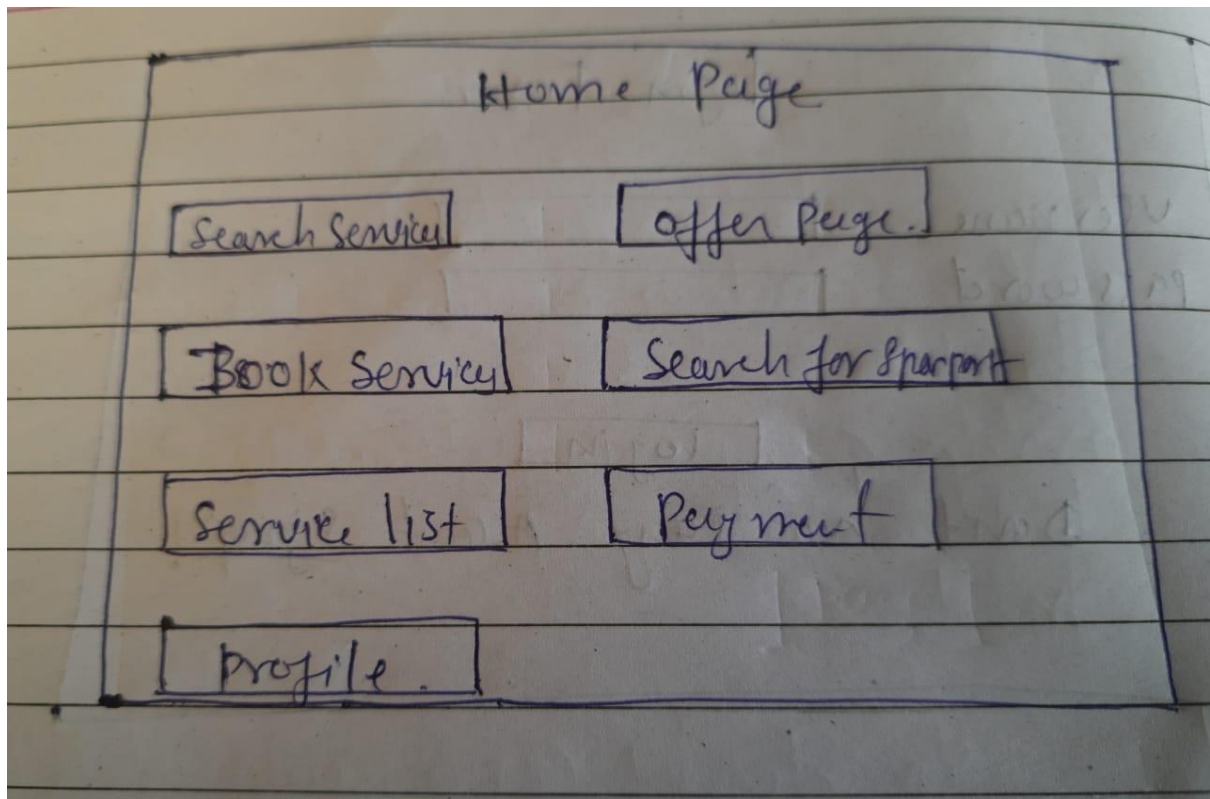 Home Page
Search Service
Offer Page.
Book Service
Search for Sparpart
Service list
Payment
Profile.